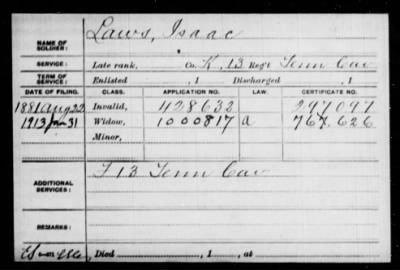 NAME OF SOLDIER: Laws, Isaac
SERVICE: Late rank, Co. K, 13 Reg't Tenn Cav
TERM OF SERVICE: Enlisted , 1 Discharged , 1
DATE OF FILING. CLASS. APPLICATION NO. LAW. CERTIFICATE NO.
1881 Aug 22 Invalid, 428632 297.097
1913 Jan 31 Widow, 1000817 a 767.626
Minor,
ADDITIONAL SERVICES: F 13 Tenn Cav
REMARKS:
Died , 1 , at